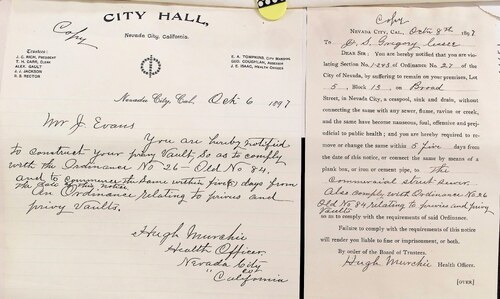 CITY HALL,
Nevada City, California.
Copy
Trustees:
J. C. RICH, PRESIDENT
T. H. CARR, CLERK
ALEX. GAULT
J. J. JACKSON
S. B. RECTOR
E. A. TOMPKINS, CITY MARSHAL
GEO. COUGHLAN, ASSESSOR
I. E. ISAAC, HEALTH OFFICER
Nevada City, Cal. Oct 6 1897
Mr J. Evans
You are hereby notified
to construct your privy Vault, so as to comply
with the Ordinance No 26 – Old No 84.
and to commence the same within five(5) days from
the date of this notice
An Ordinance relating to privies and
privy Vaults.
Hugh Murchie
Health Officer
Nevada City
California
Copy
NEVADA CITY, CAL. Octr 8th 1897
To J. S. Gregory
DEAR SIR: You are hereby notified that you are
violating Section No. 1-2&3 of Ordinance No 27 of the
City of Nevada, by suffering to remain on your premises, Lot
5, Block 13, on Broad
Street, in Nevada City, a cesspool, sink and drain, without
connecting the same with any sewer, flume, ravine or creek,
and the same have become nauseous, foul, offensive and pre-
judicial to public health; and you are hereby required to re-
move or change the same within 5 five days from
the date of this notice, or connect the same by means of a
plank box, or iron or cement pipe, to The
commercial street sewer.
Also comply with Ordinance No 26
Old No 84 relating to privies and privy
Vaults
so as to comply with the requirements of said Ordinance.
Failure to comply with the requirements of this notice
will render you liable to fine or imprisonment, or both.
By order of the Board of Trustees.
Hugh Murchie Health Officer.
[OVER]